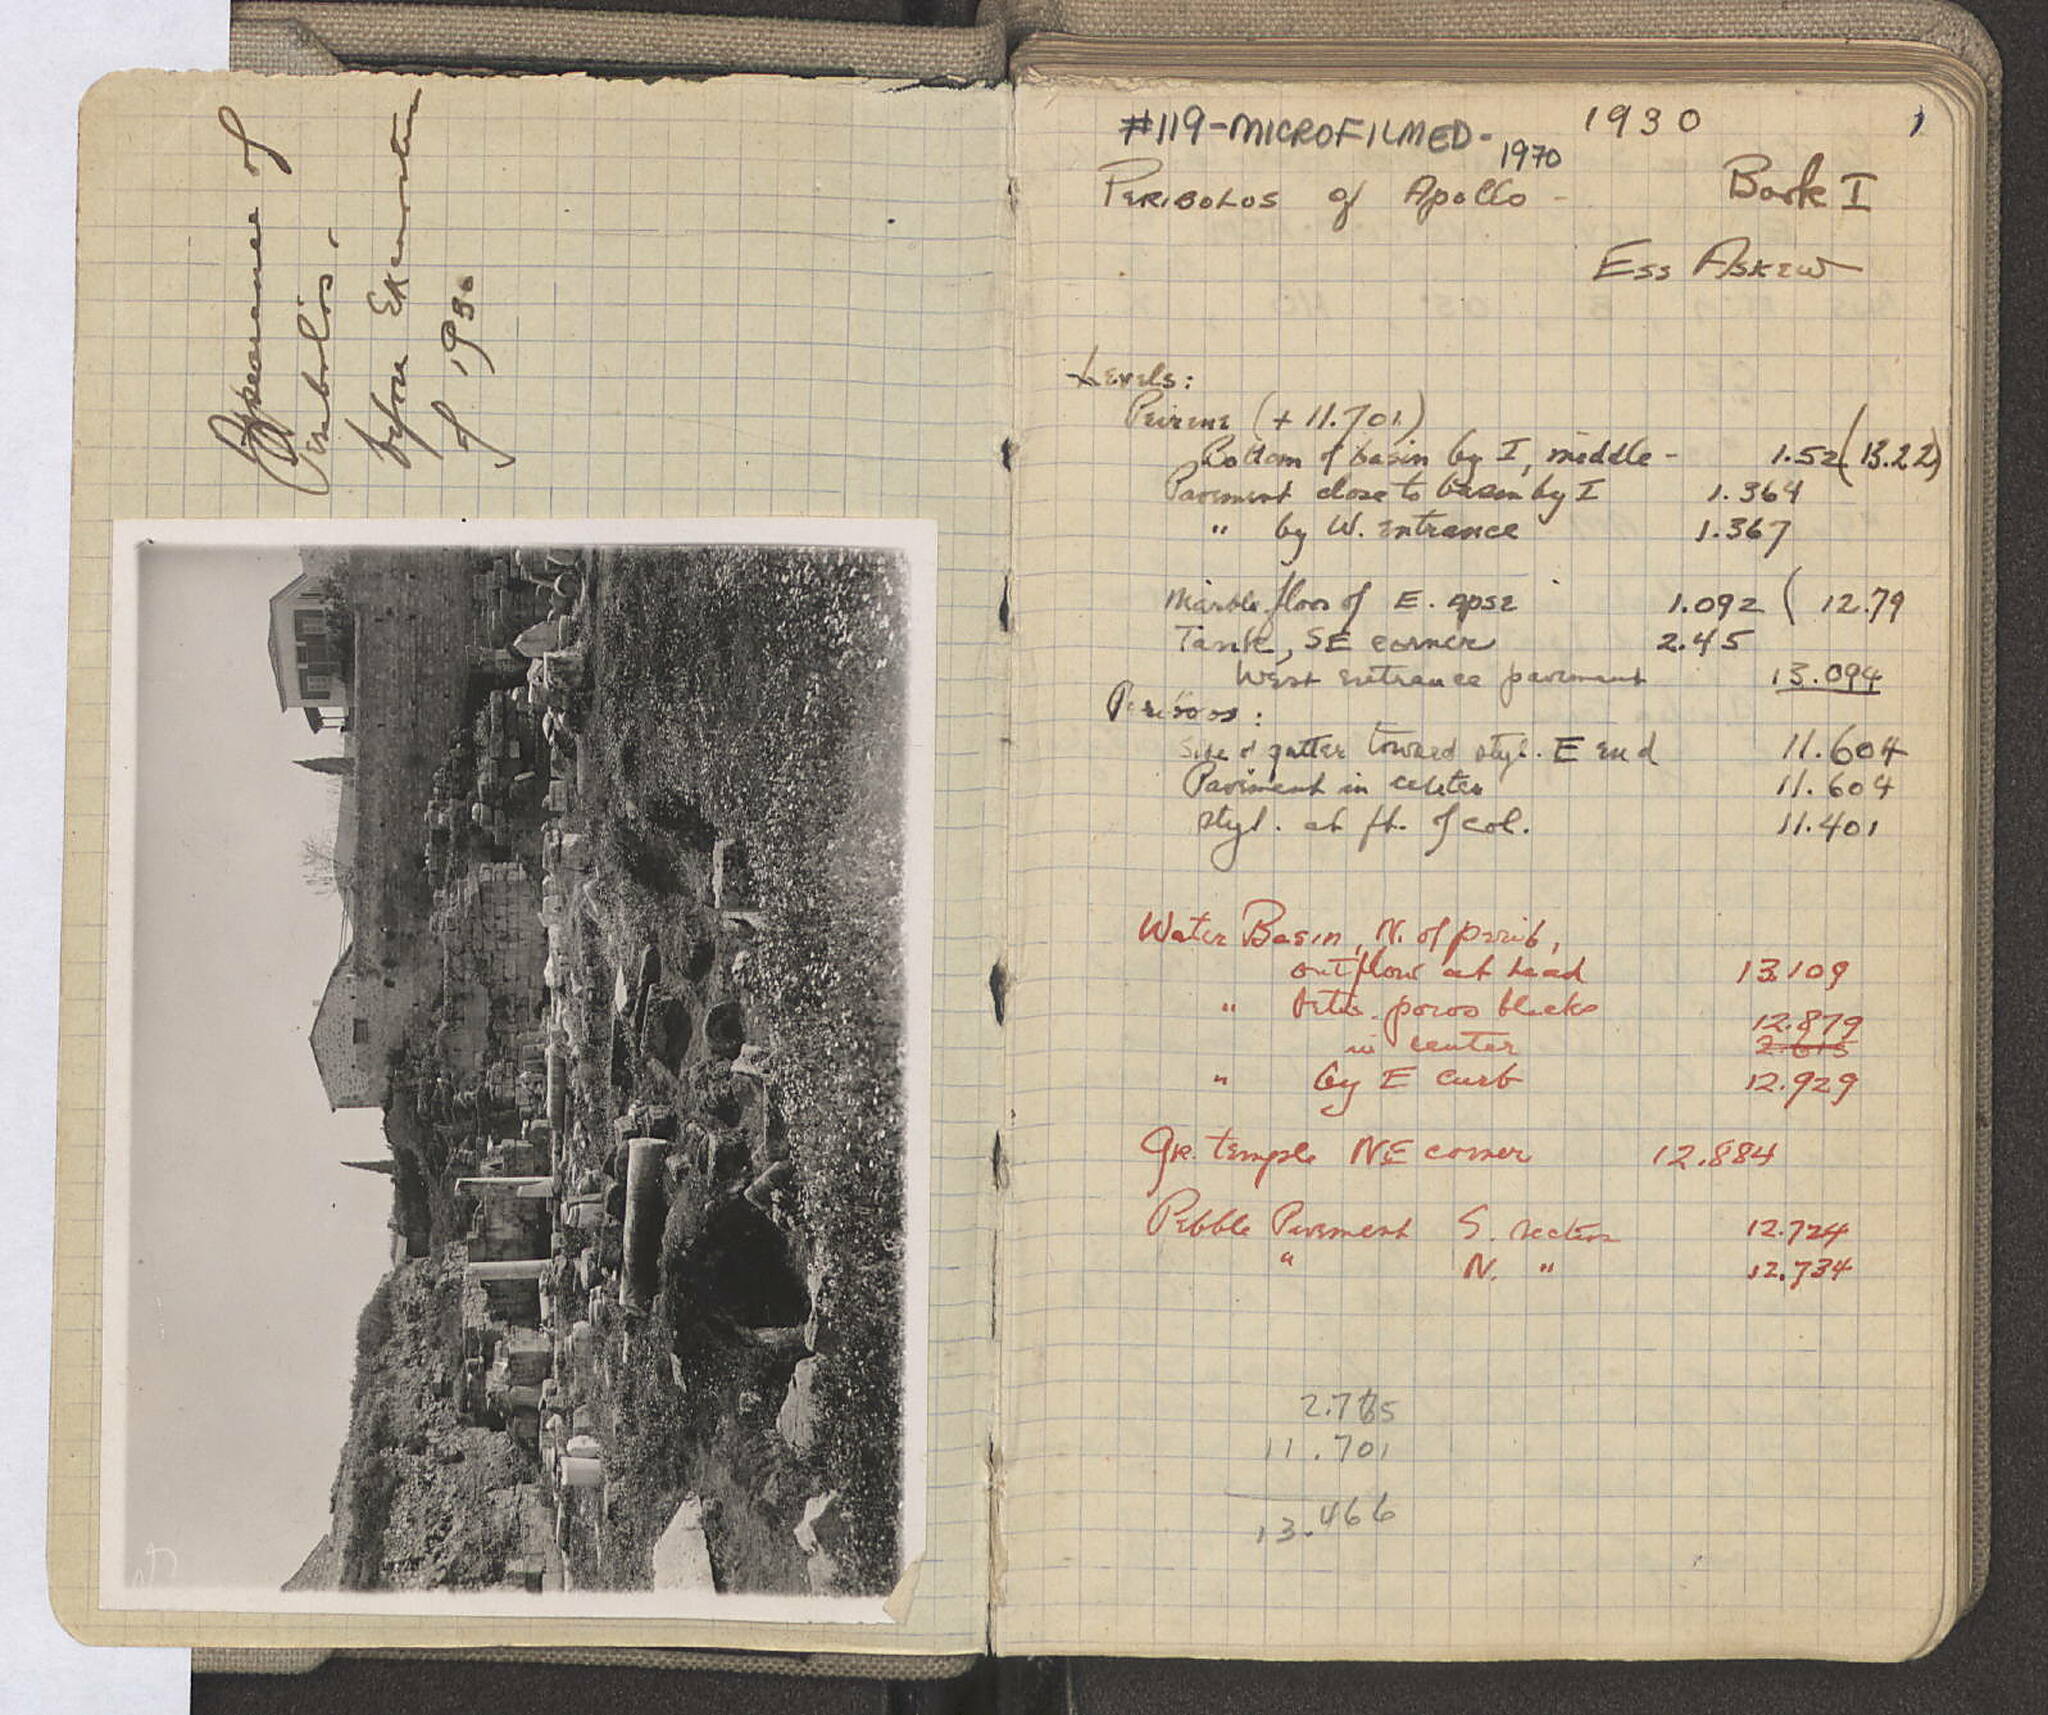 Appearance of
Peribolos.
before Excavation
of 1930
#119-MICROFILMED-
1970
1930
1
PERIBOLOS of Apollo -
Book I
Ess Askew
Levels:
Peirene (+ 11.701)
Bottom of basin by I, middle - 1.52 (13.22)
Pavement close to basin by I 1.364
" by W. entrance 1.367
Marble floor of E. apse 1.092 ( 12.79
Tank, SE corner 2.45
West entrance pavement 13.094
Peribolos:
Side of gutter toward styl. E end 11.604
Paviment in center 11.604
Styl. at ft. of col. 11.401
Water Basin, N. of perib,
outflow at head 13.109
" betw. poros blocks
12.879
in center 2.615
" by E curb 12.929
Gk. temple NE corner 12.884
Pebble Pavement S. section 12.724
" N. " 12.734
2.765
11.701
13.466